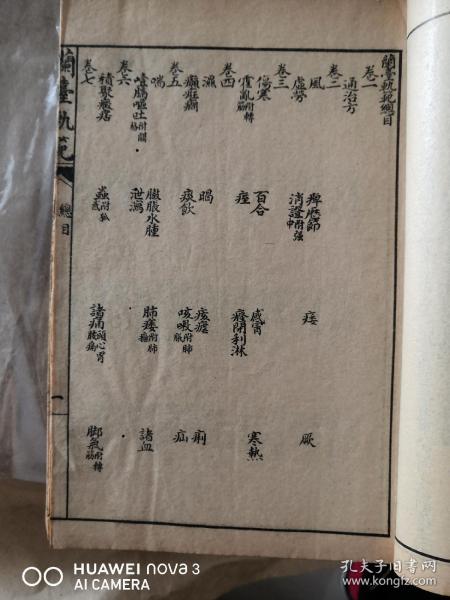 蘭臺軌範總目
卷一
通治方
卷二
風 痺歷節 痿 厥
虛勞 消證附強中
卷三
傷寒 百合 感冒 寒熱
霍亂附轉筋 痙 癃閉利淋
卷四
濕 暍 痰 痢
癲狂癎 痰飲 咳吸附肺脹 疝
卷五
喘 臌脹水腫 肺痿附肺癰 諸血
噎膈嘔吐附關格 泄瀉
卷六
積聚癥痞 蟲附狐惑 諸痛頭心胃腰痛 脚氣附轉筋
卷七
蘭臺軌範
總目
一
HUAWEI nova 3
AI CAMERA
孔夫子旧书网
www.kongfz.com